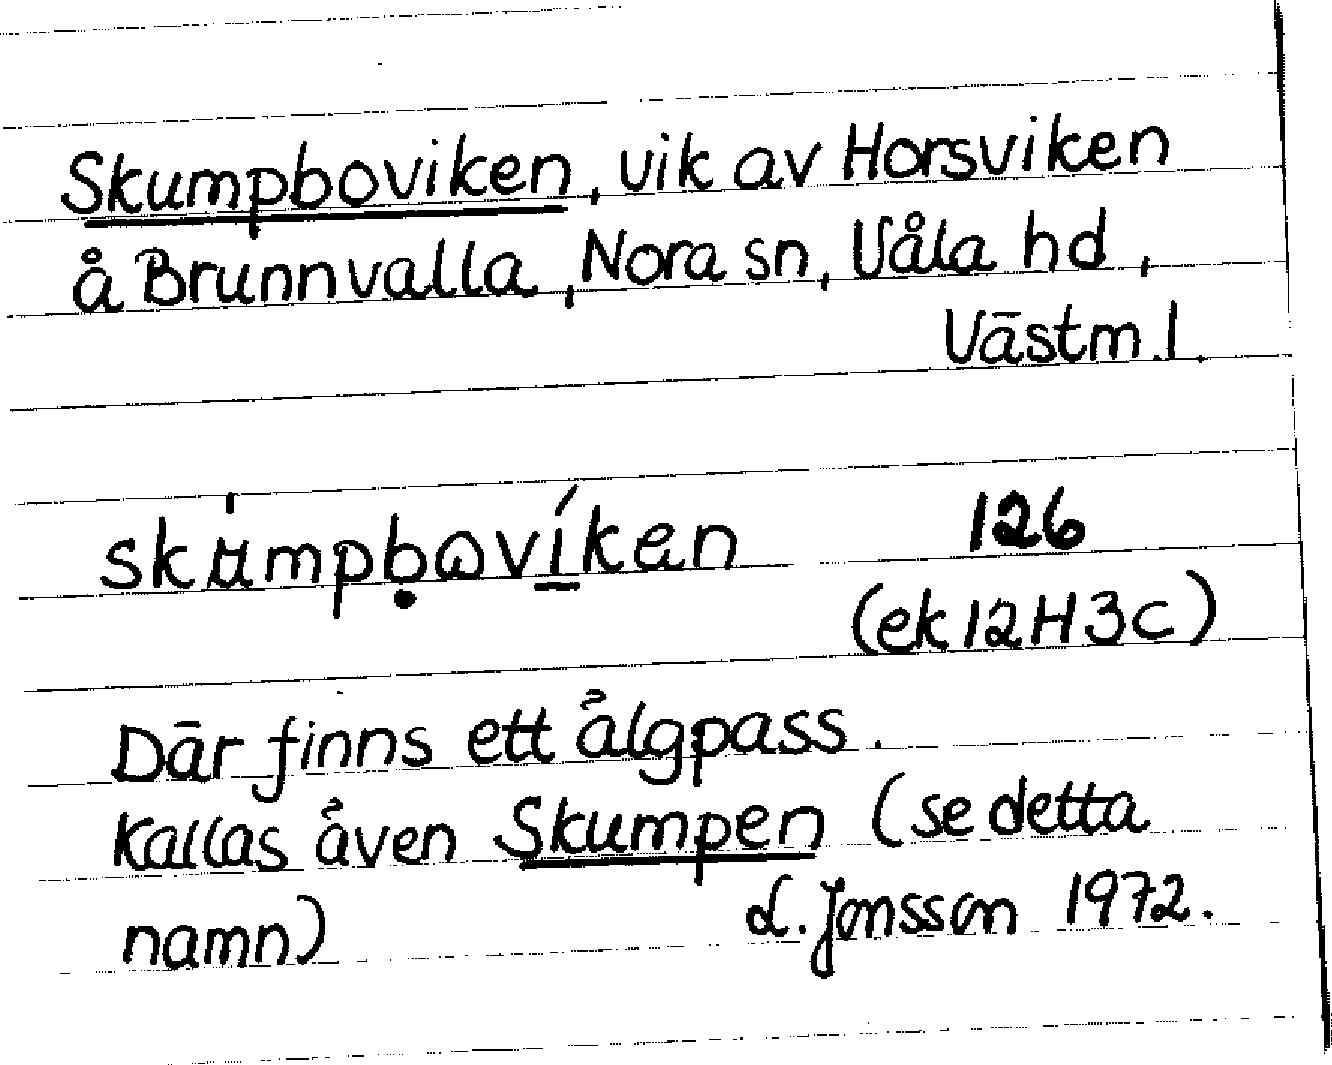 Skumpboviken, vik av Horsviken
å Brunnvalla, Nora sn, Våla hd,
Västm.l.
126
(ek 12H3c)
Där finns ett älgpass.
Kallas även Skumpen (se detta
namn) L. Jonsson 1972.